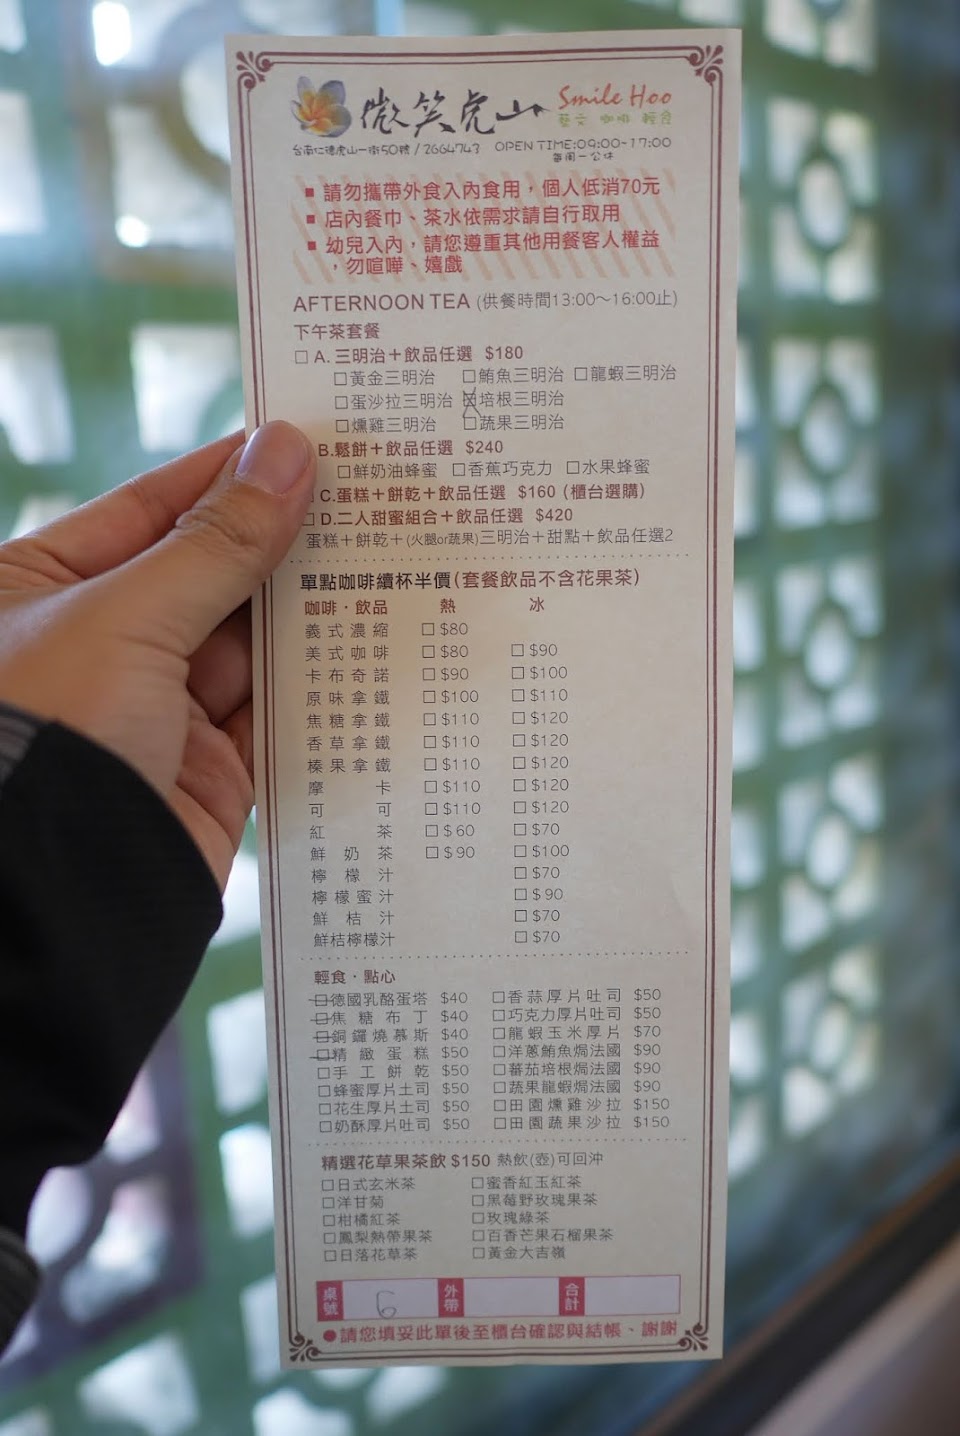 微笑虎山 Smile Hoo
藝文 咖啡 輕食
台南仁德虎山一街50號 / 2664743 OPEN TIME:09:00~17:00
每周一公休
■ 請勿攜帶外食入內食用，個人低消70元
■ 店內餐巾、茶水依需求請自行取用
■ 幼兒入內，請您遵重其他用餐客人權益
，勿喧嘩、嬉戲
AFTERNOON TEA (供餐時間13:00～16:00止)
下午茶套餐
□ A. 三明治＋飲品任選 $180
□黃金三明治 □鮪魚三明治 □龍蝦三明治
□蛋沙拉三明治 □培根三明治
□燻雞三明治 □蔬果三明治
B.鬆餅＋飲品任選 $240
□鮮奶油蜂蜜 □香蕉巧克力 □水果蜂蜜
□ C.蛋糕＋餅乾＋飲品任選 $160 (櫃台選購)
□ D.二人甜蜜組合＋飲品任選 $420
蛋糕＋餅乾＋(火腿or蔬果)三明治＋甜點＋飲品任選2
單點咖啡續杯半價(套餐飲品不含花果茶)
咖啡·飲品 熱 冰
義式濃縮 □ $80
美式咖啡 □ $80 □ $90
卡布奇諾 □ $90 □ $100
原味拿鐵 □ $100 □ $110
焦糖拿鐵 □ $110 □ $120
香草拿鐵 □ $110 □ $120
榛果拿鐵 □ $110 □ $120
摩卡 □ $110 □ $120
可可 □ $110 □ $120
紅茶 □ $60 □ $70
鮮奶茶 □ $90 □ $100
檸檬汁 □ $70
檸檬蜜汁 □ $90
鮮桔汁 □ $70
鮮桔檸檬汁 □ $70
輕食·點心
□德國乳酪蛋塔 $40 □香蒜厚片吐司 $50
□焦糖布丁 $40 □巧克力厚片吐司 $50
□銅鑼燒慕斯 $40 □龍蝦玉米厚片 $70
□精緻蛋糕 $50 □洋蔥鮪魚焗法國 $90
□手工餅乾 $50 □蕃茄培根焗法國 $90
□蜂蜜厚片土司 $50 □蔬果龍蝦焗法國 $90
□花生厚片土司 $50 □田園燻雞沙拉 $150
□奶酥厚片吐司 $50 □田園蔬果沙拉 $150
精選花草果茶飲 $150 熱飲(壺)可回沖
□日式玄米茶 □蜜香紅玉紅茶
□洋甘菊 □黑莓野玫瑰果茶
□柑橘紅茶 □玫瑰綠茶
□鳳梨熱帶果茶 □百香芒果石榴果茶
□日落花草茶 □黃金大吉嶺
桌號 6 外帶 合計
●請您填妥此單後至櫃台確認與結帳、謝謝